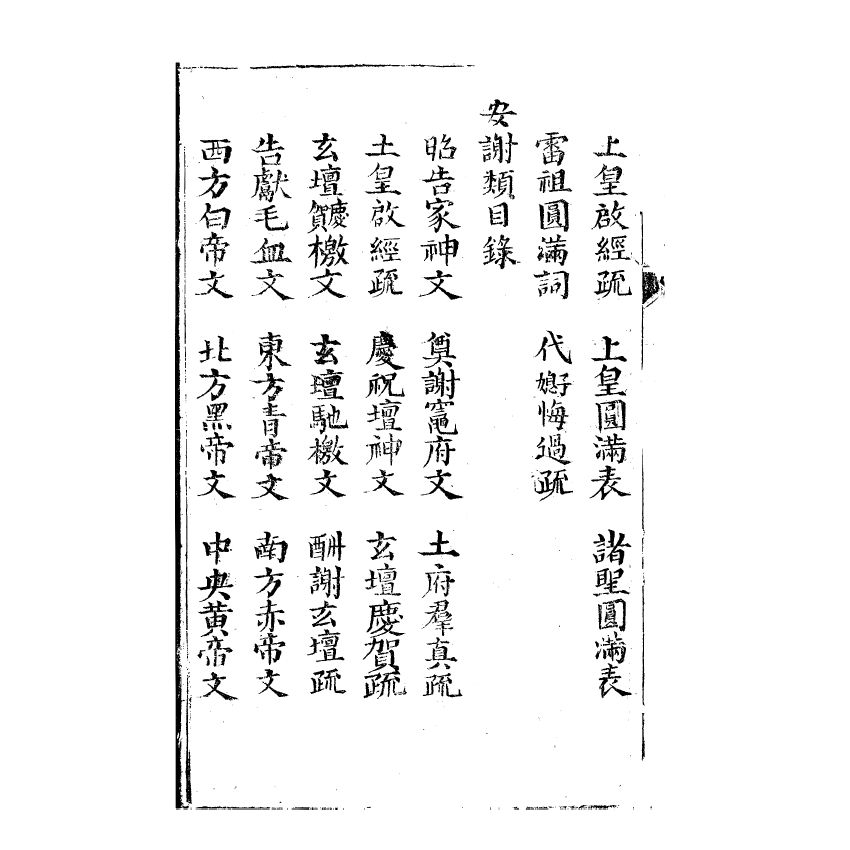 上皇啟經疏　上皇圓滿表　諸聖圓滿表
雷祖圓滿詞　代𡣕悔過疏
安謝類目錄
昭告家神文　奠謝竈府文　土府羣真疏
土皇啟經疏　慶祝壇神文　玄壇慶賀疏
玄壇慶賀檄文　玄壇馳檄文　酬謝玄壇疏
告獻毛血文　東方青帝文　南方赤帝文
西方白帝文　北方黑帝文　中央黃帝文